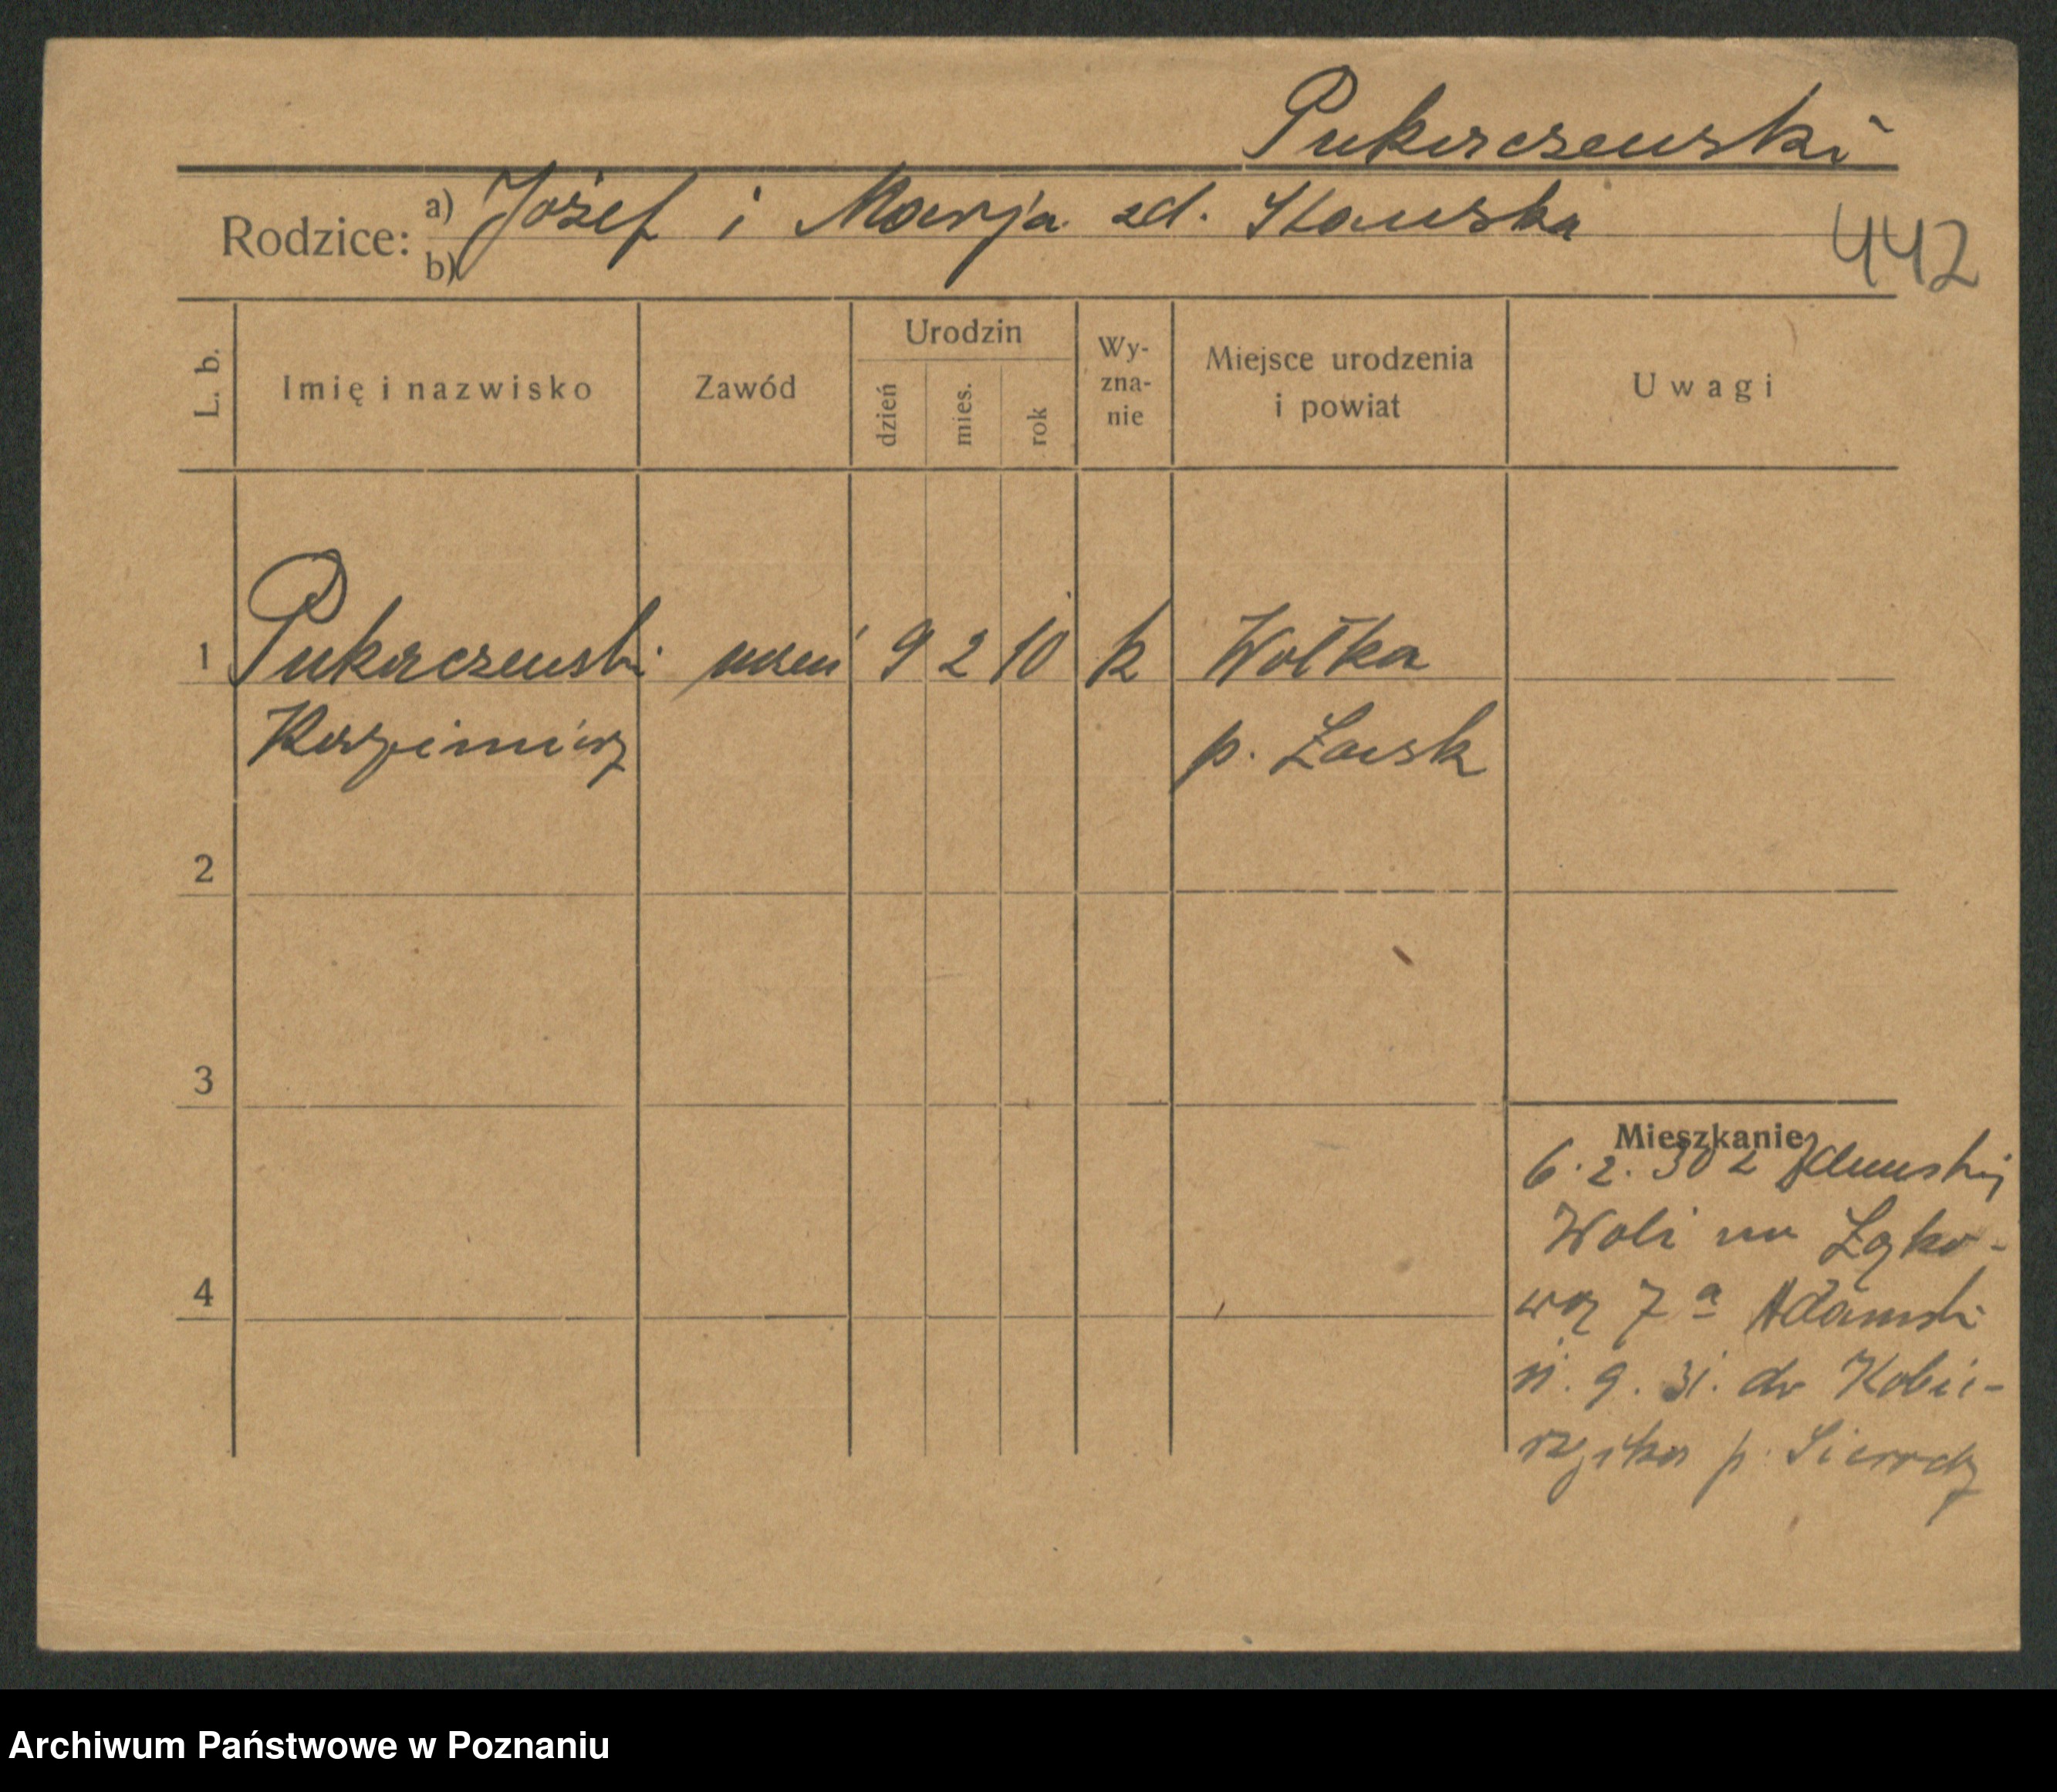 Pukaczewski
Rodzice: a) Józef i Marja zd. Sławska
b)
442
L. b.
Imię i nazwisko
Zawód
Urodzin
dzień
mies.
rok
Wy-
zna-
nie
Miejsce urodzenia
i powiat
Uwagi
1 Pukaczewski uczeń 9 2 10 k Wolka
Kazimierz p. Łask
2
3
4
Mieszkanie
6. 2. 30 z Zduńskiej
Woli na Łąko-
wą 7 a Adamski
11. 9. 31. do Kobie-
rzycka p. Sieradz
Archiwum Państwowe w Poznaniu